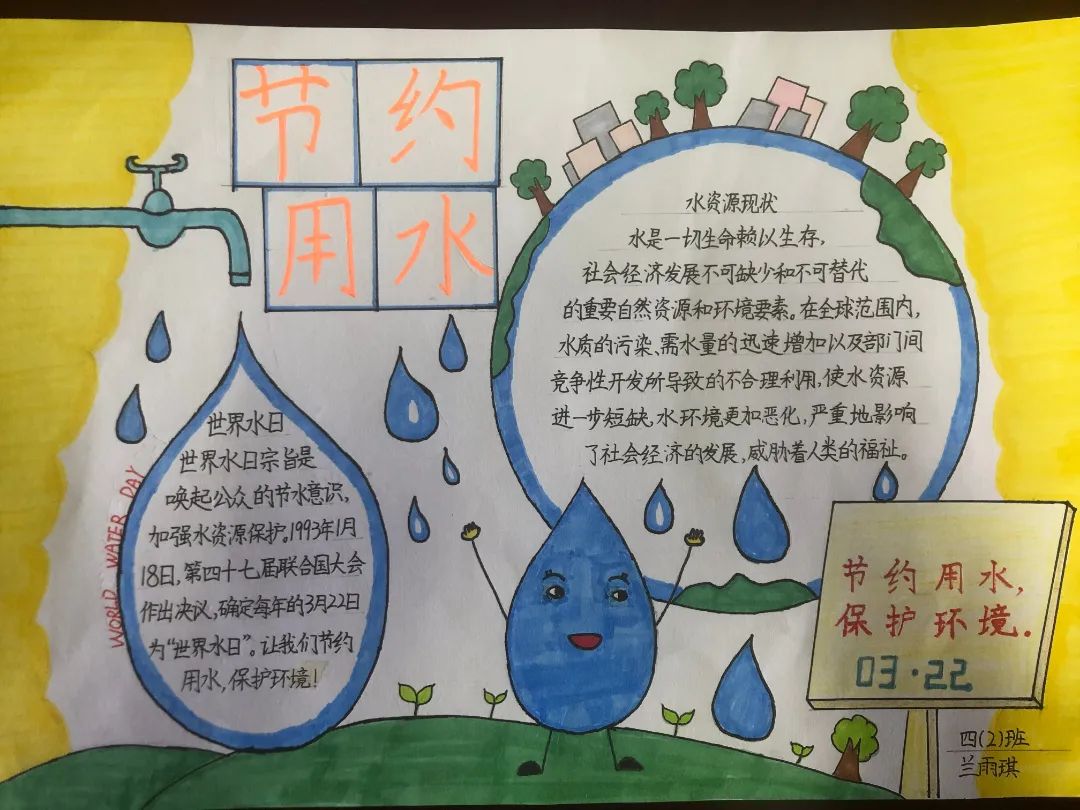 节约
用水
水资源现状
水是一切生命赖以生存,
社会经济发展不可缺少和不可替代
的重要自然资源和环境要素。在全球范围内,
水质的污染、需水量的迅速增加以及部门间
竞争性开发所导致的不合理利用,使水资源
进一步短缺,水环境更加恶化,严重地影响
了社会经济的发展,威胁着人类的福祉。
世界水日
世界水日宗旨是
唤起公众的节水意识,
加强水资源保护。1993年1月
18日,第四十七届联合国大会
作出决议,确定每年的3月22日
为“世界水日”。让我们节约
用水,保护环境!
WORLD WATER DAY
节约用水,
保护环境.
03·22
四(2)班
兰雨琪